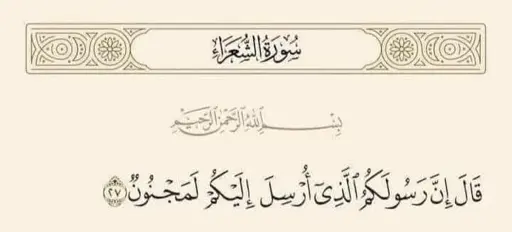 سُورَةُ الشُّعَرَاءِ
بِسْمِ اللَّهِ الرَّحْمَٰنِ الرَّحِيمِ
قَالَ إِنَّ رَسُولَكُمُ ٱلَّذِىٓ أُرْسِلَ إِلَيْكُمْ لَمَجْنُونٌ ٢٧